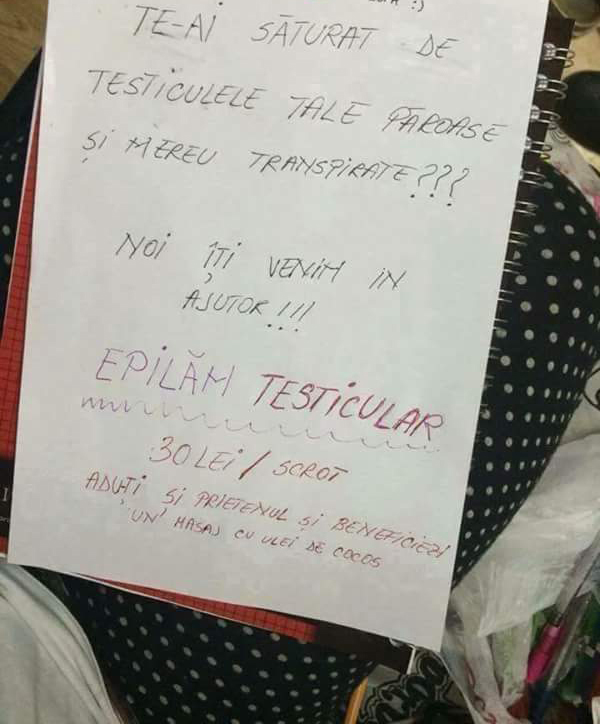 :)
TE-AI SĂTURAT DE
TESTICULELE TALE PĂROASE
ȘI MEREU TRANSPIRATE???
NOI ÎȚI VENIM IN
AJUTOR!!!
EPILĂM TESTICULAR
30 LEI / SCROT
ADUȚI ȘI PRIETENUL ȘI BENEFICIEZI
"UN" MASAJ CU ULEI DE COCOS